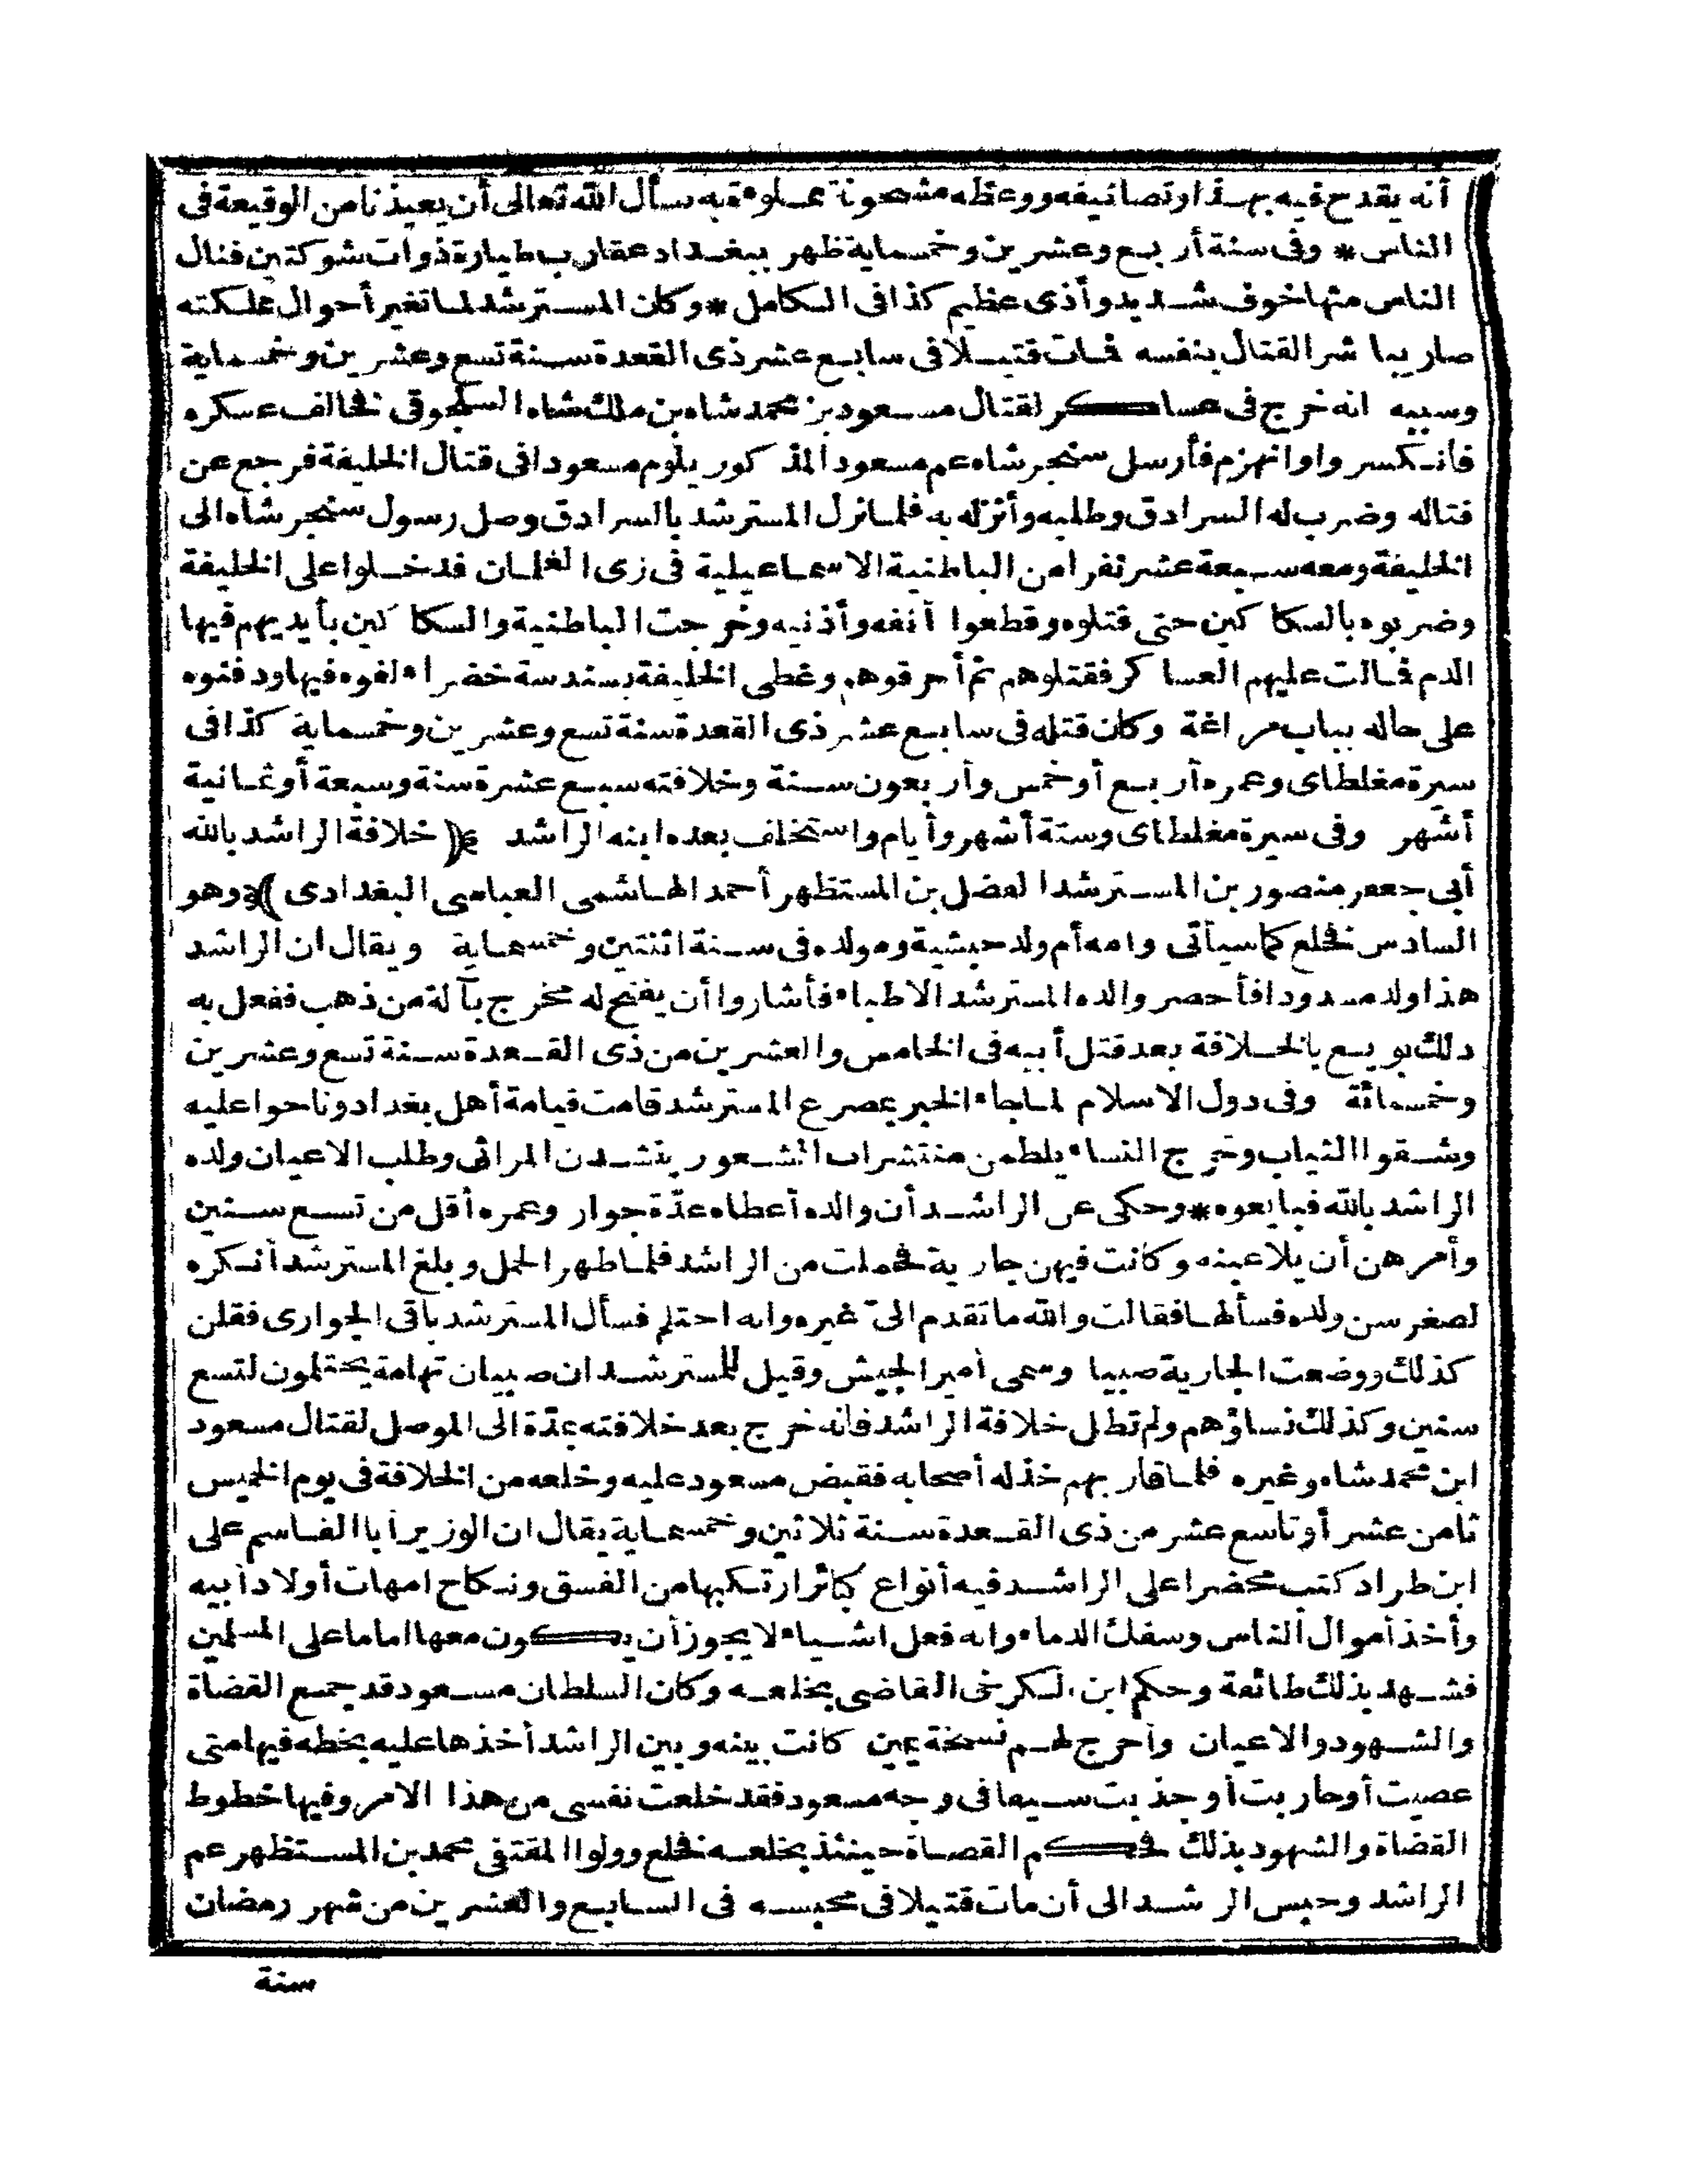 أنه يقدح فيه بهذا وتصانيفه ووعظه مشحونة مملوءة به نسأل الله تعالى أن يعيذنا من الوقيعة فى
الناس * وفى سنة أربع وعشرين وخمسماية ظهر ببغداد عقارب طيارة ذوات شوكتين فنال
الناس منها خوف شديد وأذى عظيم كذا فى الكامل * وكان المسترشد لما تغير أحوال مملكته
صار يباشر القتال بنفسه فمات قتيلا فى سابع عشر ذى القعدة سنة تسع وعشرين وخمسماية
وسببه انه خرج فى عساكر لقتال مسعود بن محمد شاه بن ملك شاه السلجوقى فخالف عسكره
فانكسروا وانهزم فأرسل سنجر شاه عم مسعود المذكور يلوم مسعودا فى قتال الخليفة فرجع عن
قتاله وضرب له السرادق وطلبه وأنزله به فلما نزل المسترشد بالسرادق وصل رسول سنجر شاه الى
الخليفة ومعه سبعة عشر نفرا من الباطنية الاسماعيلية فى زى الغلمان فدخلوا على الخليفة
وضربوه بالسكاكين حتى قتلوه وقطعوا أنفه وأذنيه وخرجت الباطنية والسكاكين بأيديهم فيها
الدم فمالت عليهم العساكر فقتلوهم ثم أحرقوهم وغطى الخليفة بسندسة خضراء لفوه فيها ودفنوه
على حاله بباب مراغة وكان قتله فى سابع عشر ذى القعدة سنة تسع وعشرين وخمسماية كذا فى
سيرة مغلطاى وعمره أربع أو خمس وأربعون سنة وخلافته سبع عشرة سنة وسبعة أو ثمانية
أشهر وفى سيرة مغلطاى وستة أشهر وأيام واستخلف بعده ابنه الراشد ﴿ خلافة الراشد بالله
أبى جعفر منصور بن المسترشد الفضل بن المستظهر أحمد الهاشمى العباسى البغدادى ﴾ وهو
السادس فخلع كما سيأتى وامه أم ولد حبشية ومولده فى سنة اثنتين وخمسماية ويقال ان الراشد
هذا ولد مسدودا فأحضر والده المسترشد الاطباء فأشاروا أن يفتح له مخرج بآلة من ذهب ففعل به
ذلك بويع بالخلافة بعد قتل أبيه فى الخامس والعشرين من ذى القعدة سنة تسع وعشرين
وخمسمائة وفى دول الاسلام لما جاء الخبر بمصرع المسترشد قامت قيامة أهل بغداد وناحوا عليه
وشقوا الثياب وخرج النساء يلطمن منتشرات الشعور ينشدن المراثى وطلب الاعيان ولده
الراشد بالله فبايعوه * وحكى عن الراشد أن والده أعطاه عدّة جوار وعمره أقل من تسع سنين
وأمرهن أن يلاعبنه وكانت فيهن جارية فحملت من الراشد فلما ظهر الحمل وبلغ المسترشد أنكره
لصغر سن ولده فسألها فقالت والله ما تقدم الىّ غيره وانه احتلم فسأل المسترشد باقى الجوارى فقلن
كذلك ووضعت الجارية صبيا وسمى أمير الجيش وقيل للمسترشد ان صبيان تهامة يحتلمون لتسع
سنين وكذلك نساؤهم ولم تطل خلافة الراشد فانه خرج بعد خلافته بمدّة الى الموصل لقتال مسعود
ابن محمد شاه وغيره فلما قاربهم خذله أصحابه فقبض مسعود عليه وخلعه من الخلافة فى يوم الخميس
ثامن عشر أو تاسع عشر من ذى القعدة سنة ثلاثين وخمسماية يقال ان الوزير أبا القاسم على
ابن طراد كتب محضرا على الراشد فيه أنواع كبائر ارتكبها من الفسق ونكاح امهات أولاد أبيه
وأخذ أموال الناس وسفك الدماء وانه فعل اشياء لا يجوز أن يكون معها اماما على المسلمين
فشهد بذلك طائفة وحكم ابن الكرخى القاضى بخلعه وكان السلطان مسعود قد جمع القضاة
والشهود والاعيان وأخرج لهم نسخة يمين كانت بينه وبين الراشد أخذها عليه بخطه فيها متى
عصيت أو حاربت أو جذبت سيفا فى وجه مسعود فقد خلعت نفسى من هذا الامر وفيها خطوط
القضاة والشهود بذلك فحكم القضاة حينئذ بخلعه فخلع وولوا المقتفى محمد بن المستظهر عم
الراشد وحبس الراشد الى أن مات قتيلا فى محبسه فى السابع والعشرين من شهر رمضان
سنة